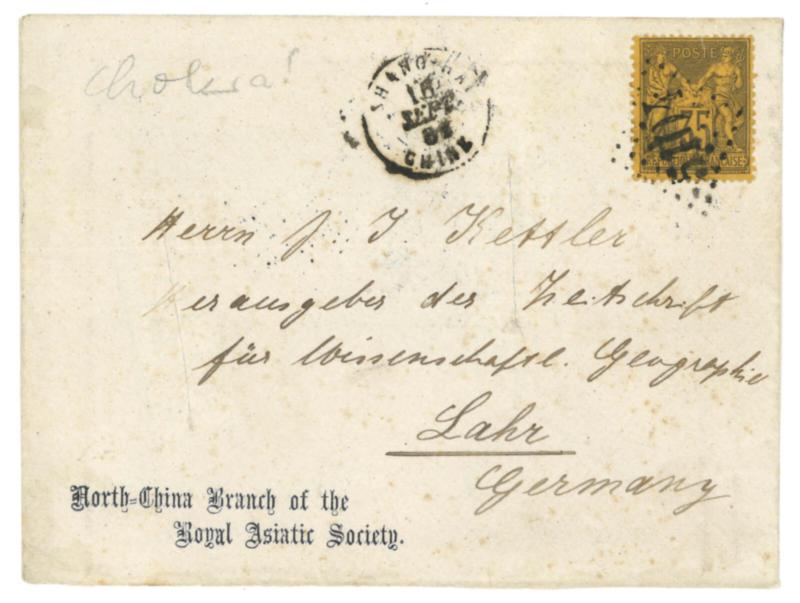 Cholera!
SHANG-HAI
SEPT.
82
CHINE
POSTE
75
Herrn J. I. Kettler
Herausgeber der Zeitschrift
für Wissenschaftl. Geographie
Lahr
Germany
North-China Branch of the
Royal Asiatic Society.